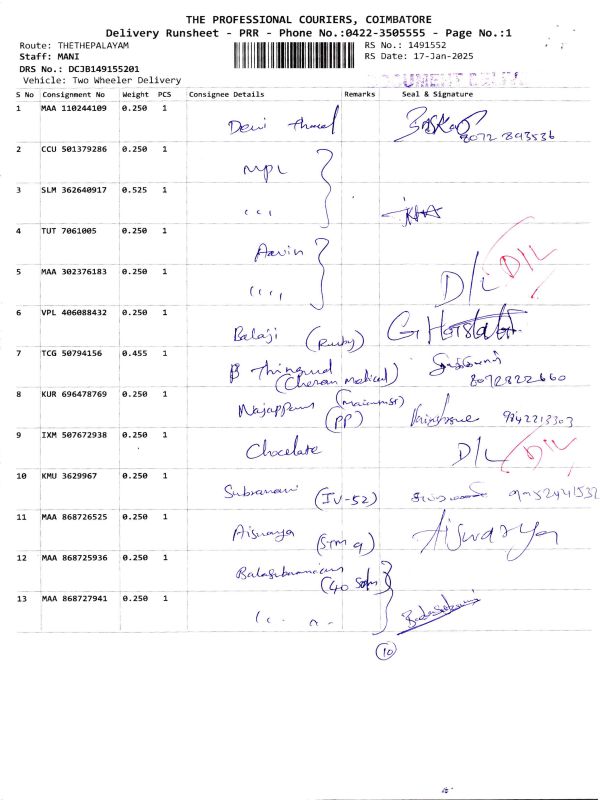 THE PROFESSIONAL COURIERS, COIMBATORE
Delivery Runsheet - PRR - Phone No.:0422-3505555 - Page No.:1
Route: THETHEPALAYAM
Staff: MANI
DRS No.: DCJB149155201
Vehicle: Two Wheeler Delivery
RS No.: 1491552
RS Date: 17-Jan-2025
S No Consignment No Weight PCS Consignee Details Remarks Seal & Signature
1 MAA 110244109 0.250 1 8072 893536
2 CCU 501379286 0.250 1 MPL
3 SLM 362640917 0.525 1 " "
4 TUT 7061005 0.250 1 Aavin
5 MAA 302376183 0.250 1 " " D/L D/L
6 VPL 406088432 0.250 1 Balaji (Ruby)
7 TCG 50794156 0.455 1 (Cheran medical) 8072822660
8 KUR 696478769 0.250 1 (PP) 9842213303
9 IXM 507672938 0.250 1 Chocelate D/L D/L
10 KMU 3629967 0.250 1 (IV-52)
11 MAA 868726525 0.250 1 Aiswarya Aiswarya
12 MAA 868725936 0.250 1
13 MAA 868727941 0.250 1 " "
10